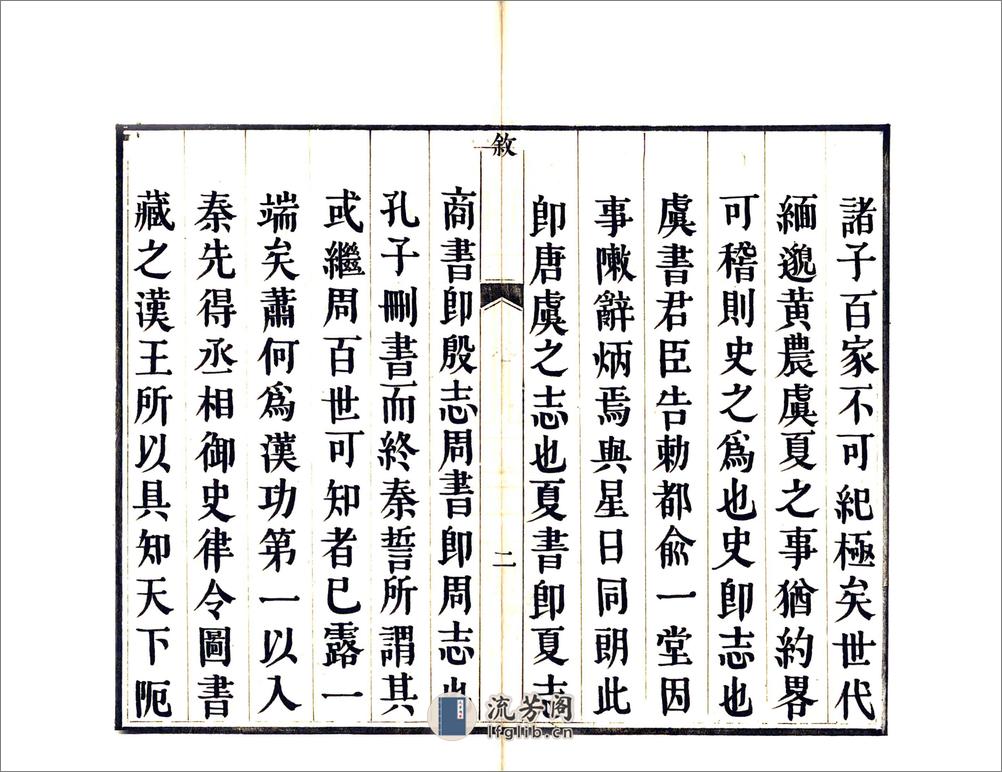 諸子百家不可紀極矣世代
緬邈黄農虞夏之事猶約畧
可稽則史之爲也史即志也
虞書君臣告勅都俞一堂因
事敶辭炳焉與星日同朗此
即唐虞之志也夏書即夏志
敘
二
商書即殷志周書即周志也
孔子刪書而終秦誓所謂其
或繼周百世可知者已露一
端矣蕭何爲漢功第一以入
秦先得丞相御史律令圖書
藏之漢王所以具知天下阨
流芳阁
lfglib.cn